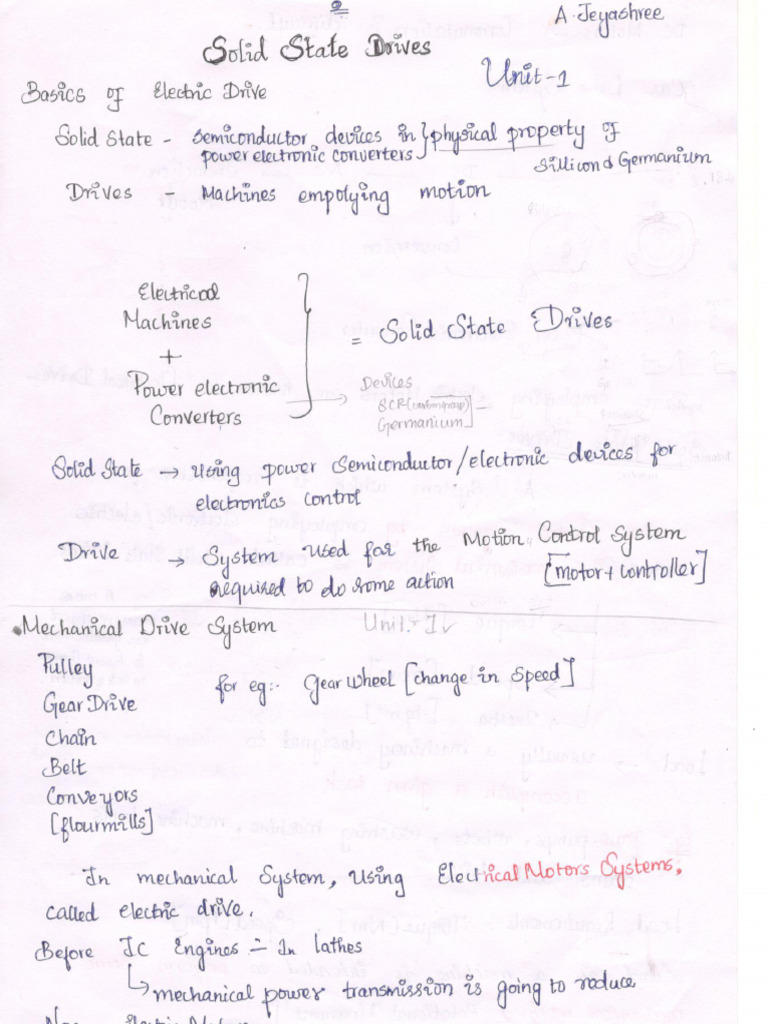 A. Jeyashree
Solid State Drives
Unit-1
Basics of Electric Drive
Solid State - Semiconductor devices in } physical property of
power electronic converters Sillicon & Germanium
Drives - Machines empolying motion
Electrical
Machines
+
Power electronic
Converters
= Solid State Drives
→ Devices
SCR
Germanium]
Solid State → Using power Semiconductor/electronic devices for
electronics control
Drive → System used for the Motion Control System
required to do some action [motor + controller]
Mechanical Drive System
Pulley
for eg:- Gear wheel [change in Speed]
Gear Drive
Chain
Belt
Conveyors
[flourmills]
In mechanical System, Using Electrical Motors Systems,
called electric drive.
Before IC Engines :- In lathes
↳ mechanical power transmission is going to reduce